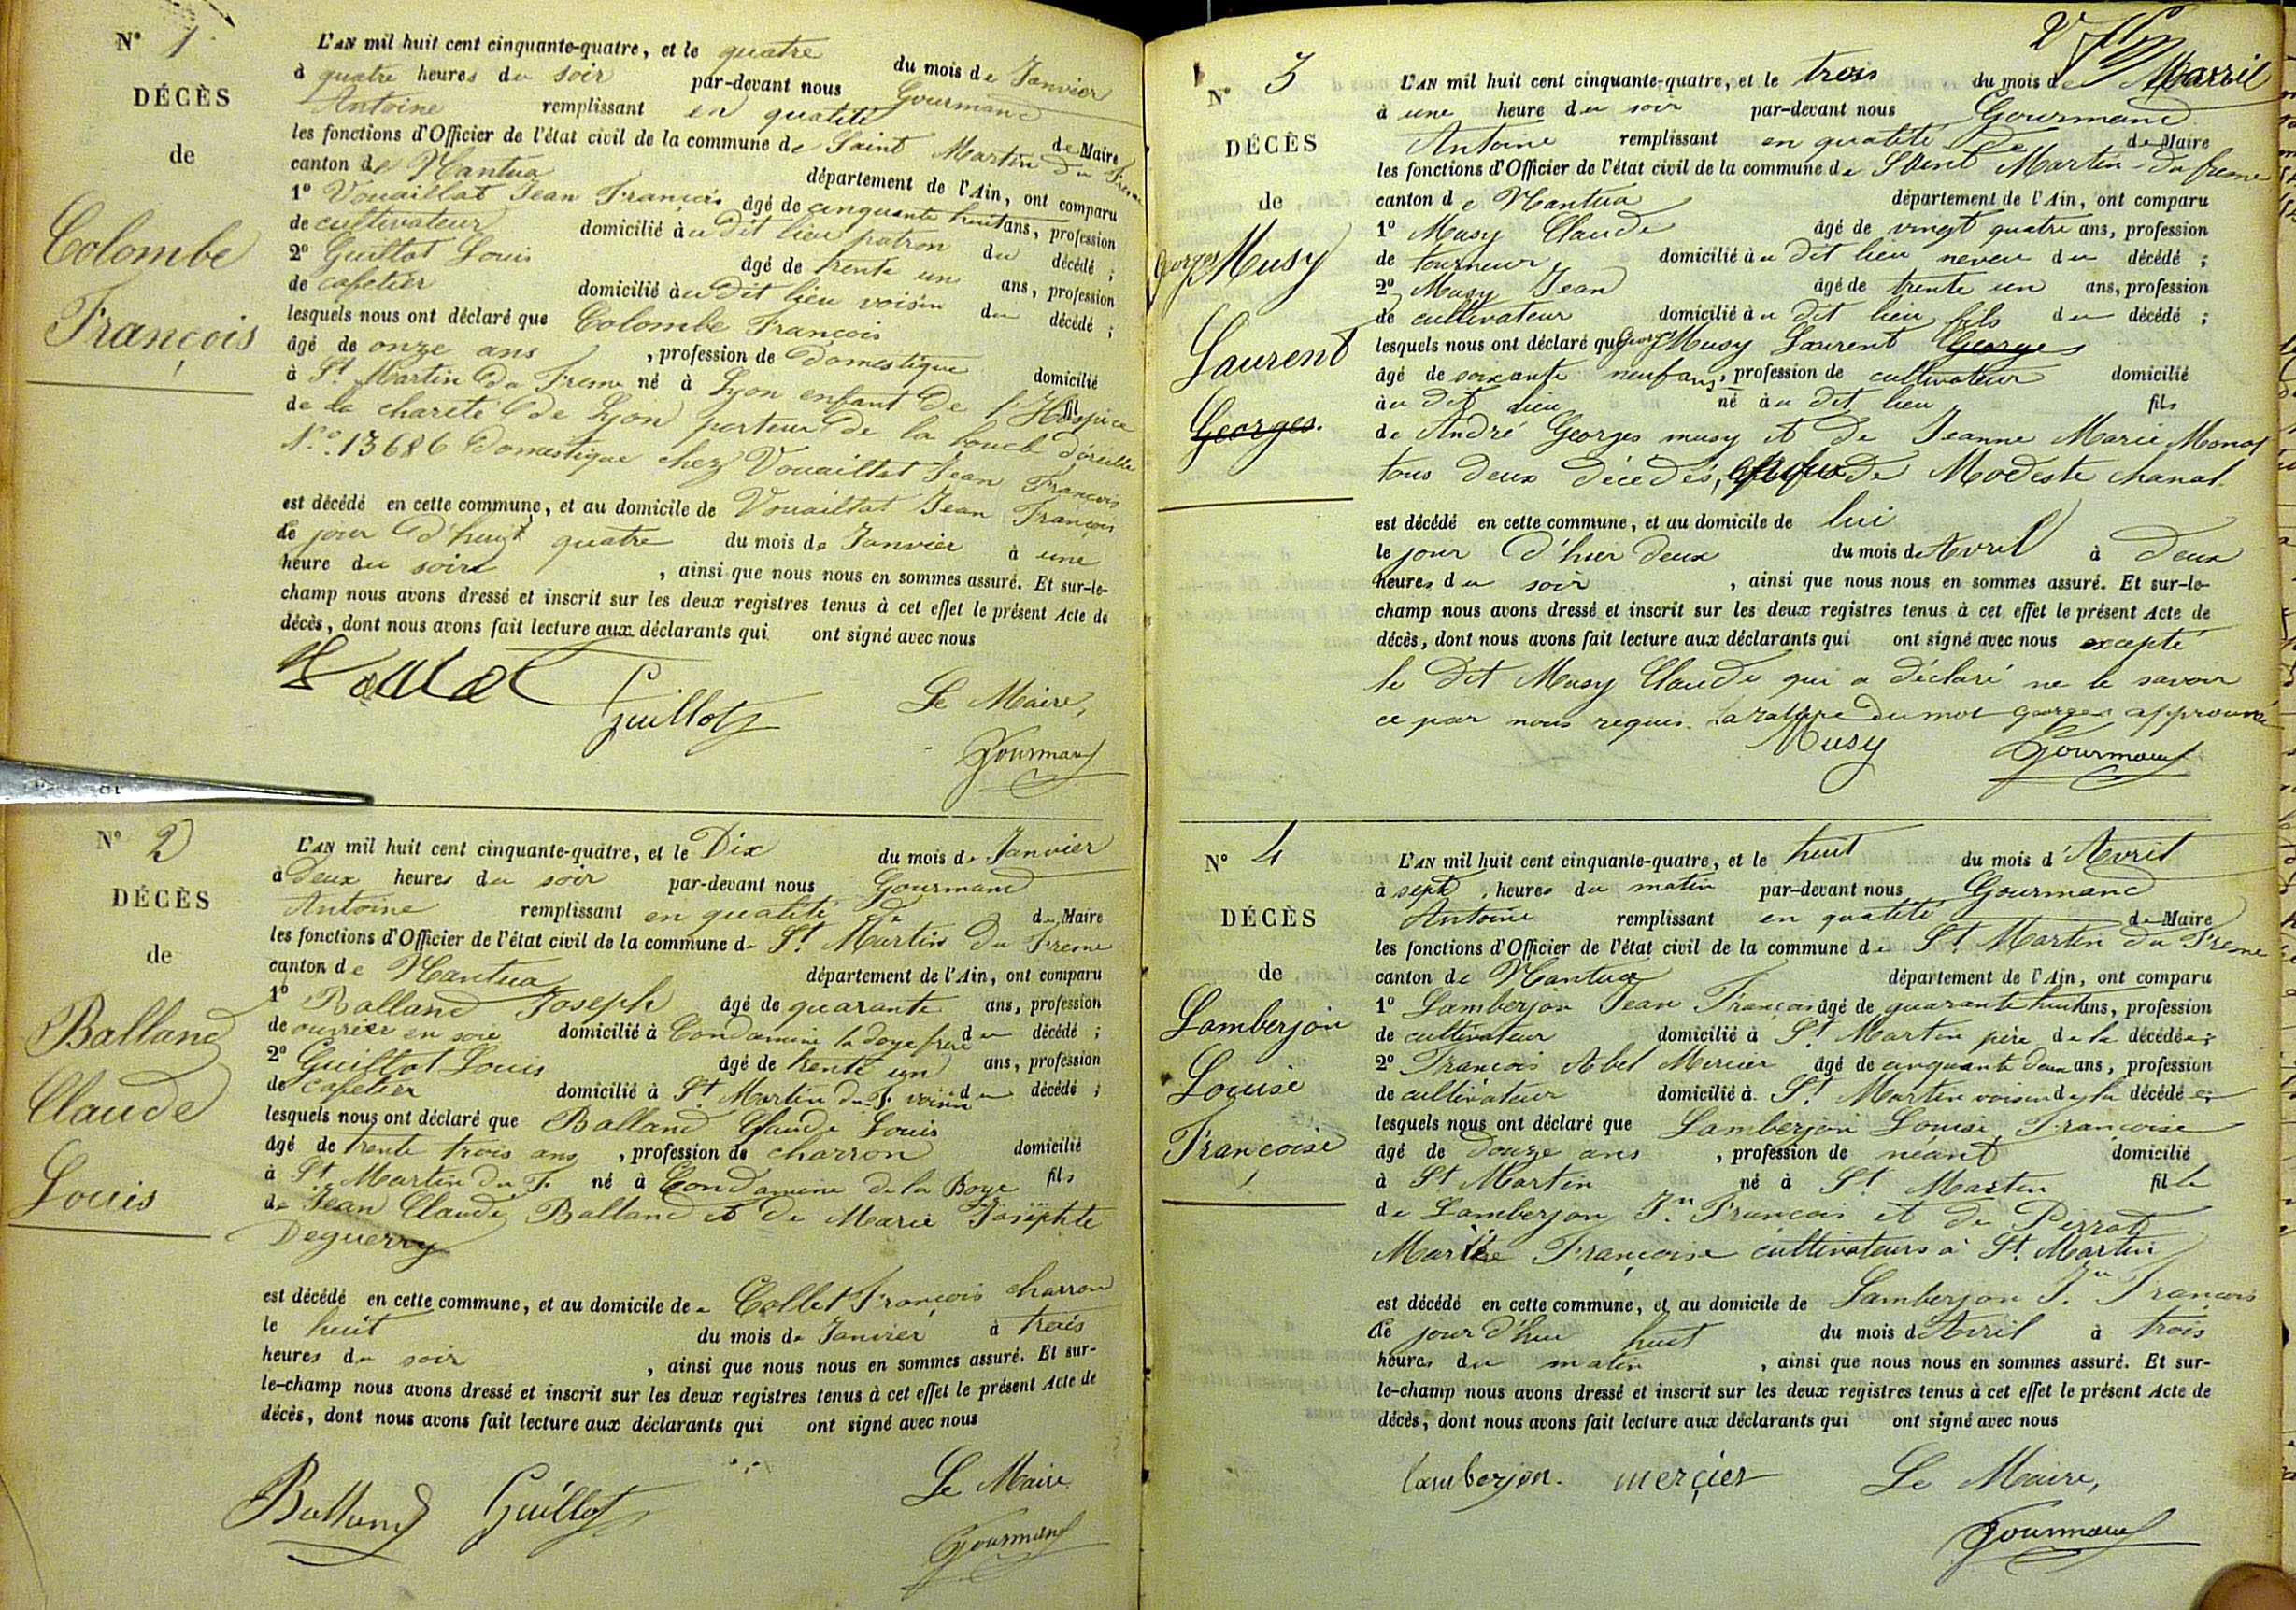 N° 1
DÉCÈS
de
Colombe
François
L'AN mil huit cent cinquante-quatre, et le quatre du mois de Janvier
à quatre heures du soir par-devant nous Gourmand
Antoine remplissant en qualité de Maire
les fonctions d'Officier de l'état civil de la commune de Saint Martin du Frene
canton de Nantua département de l'Ain, ont comparu
1° Vouaillat Jean François âgé de cinquante huit ans, profession
de cultivateur domicilié au dit lieu patron du décédé ;
2° Guillot Louis âgé de trente un ans, profession
de cafetier domicilié au dit lieu voisin du décédé ;
lesquels nous ont déclaré que Colombe François
âgé de onze ans , profession de Domestique domicilié
à St Martin du Frene né à Lyon enfant de l'Hospice fil
de la charité de Lyon porteur de la boucle d'oreille
N° 13686 Domestique chez Vouaillat Jean François
est décédé en cette commune, et au domicile de Vouaillat Jean François
le jour d'huit quatre du mois de Janvier à une
heure du soir , ainsi que nous nous en sommes assuré. Et sur-le-
champ nous avons dressé et inscrit sur les deux registres tenus à cet effet le présent Acte de
décès, dont nous avons fait lecture aux déclarants qui ont signé avec nous
Guillot Le Maire,
Gourmand
N° 2
DÉCÈS
de
Balland
Claude
Louis
L'AN mil huit cent cinquante-quatre, et le Dix du mois de Janvier
à Deux heures du soir par-devant nous Gourmand
Antoine remplissant en qualité de de Maire
les fonctions d'Officier de l'état civil de la commune de St Martin du Frene
canton de Nantua département de l'Ain, ont comparu
1° Balland Joseph âgé de quarante ans, profession
de ouvrier en soie domicilié à Condamine la doye frère du décédé ;
2° Guillot Louis âgé de trente un ans, profession
de cafetier domicilié à St Martin du F. voisin du décédé ;
lesquels nous ont déclaré que Balland Claude Louis
âgé de trente trois ans , profession de charron domicilié
à St Martin du F. né à Condamine de la Doye fils
de Jean Claude Balland et de Marie Josephte
Deguerry
est décédé en cette commune, et au domicile de Collet François charron
le huit du mois de Janvier à trois
heures du soir , ainsi que nous nous en sommes assuré. Et sur-
le-champ nous avons dressé et inscrit sur les deux registres tenus à cet effet le présent Acte de
décès, dont nous avons fait lecture aux déclarants qui ont signé avec nous
Balland Guillot Le Maire
Gourmand
2
N° 3
DÉCÈS
de
Georges Musy
Laurent
Georges.
L'AN mil huit cent cinquante-quatre, et le trois du mois de
à une heure du soir par-devant nous Gourmand
Antoine remplissant en qualité de de Maire
les fonctions d'Officier de l'état civil de la commune de Saint Martin du frene
canton de Nantua département de l'Ain, ont comparu
1° Musy Claude âgé de vingt quatre ans, profession
de tourneur domicilié au dit lieu neveu du décédé ;
2° Musy Jean âgé de trente un ans, profession
de cultivateur domicilié au dit lieu fils du décédé ;
lesquels nous ont déclaré que Georges Musy Laurent Georges
âgé de soixante neuf ans, profession de cultivateur domicilié
au dit lieu né au dit lieu fils
de André Georges musy et de Jeanne Marie
tous deux décédés, de Modeste chanal
est décédé en cette commune, et au domicile de lui
le jour d'hier deux du mois d'Avril à Deux
heures du soir , ainsi que nous nous en sommes assuré. Et sur-le-
champ nous avons dressé et inscrit sur les deux registres tenus à cet effet le présent Acte de
décès, dont nous avons fait lecture aux déclarants qui ont signé avec nous excepté
le dit Musy Claude qui a déclaré ne le savoir
ce par nous requis. La rature du mot georges approuvée
Musy Gourmand
N° 4
DÉCÈS
de
Lamberjon
Louise
Françoise
L'AN mil huit cent cinquante-quatre, et le huit du mois d'Avril
à sept heures du matin par-devant nous Gourmand
Antoine remplissant en qualité de Maire
les fonctions d'Officier de l'état civil de la commune de St Martin du Frene
canton de Nantua département de l'Ain, ont comparu
1° Lamberjon Jean François âgé de quarante huit ans, profession
de cultivateur domicilié à St Martin père de la décédée ;
2° François Abel Mercier âgé de cinquante deux ans, profession
de cultivateur domicilié à St Martin voisin de la décédée ;
lesquels nous ont déclaré que Lamberjon Louise Françoise
âgé de Douze ans , profession de néant domicilié
à St Martin né à St Martin fille
de Lamberjon Jn François et de Perrot
Marie Françoise cultivateurs à St Martin
est décédé en cette commune, et au domicile de Lamberjon Jn François
le jour d'hui huit du mois d'Avril à trois
heures du matin , ainsi que nous nous en sommes assuré. Et sur-
le-champ nous avons dressé et inscrit sur les deux registres tenus à cet effet le présent Acte de
décès, dont nous avons fait lecture aux déclarants qui ont signé avec nous
lamberjon. mercier Le Maire,
Gourmand